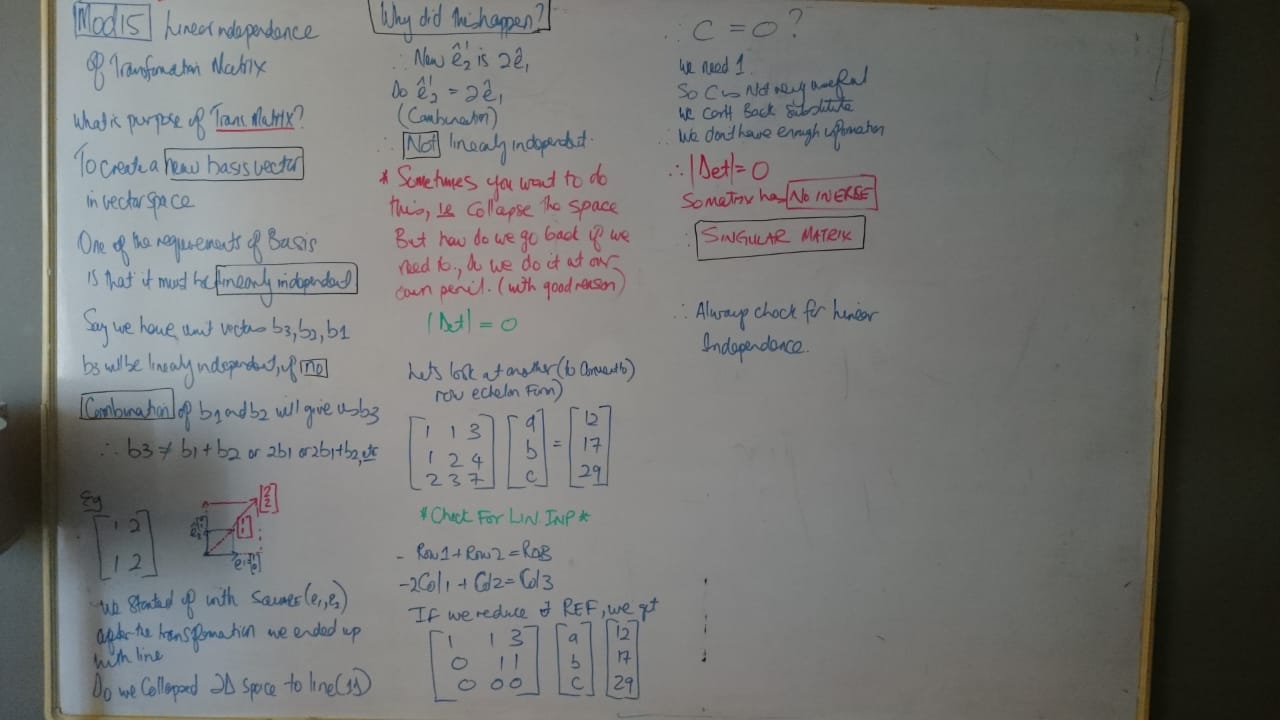 Mod15 Linear independence
Of Transformation Matrix
What is purpose of Trans Matrix?
To create a new basis vector
in vector space
One of the requirements of Basis
is that it must be linearly independent
Say we have, unit vectors b3, b2, b1
b3 will be linearly independent, if no
Combination of b1 and b2 will give us b3
∴ b3 ≠ b1 + b2 or 2b1 or 2b1+b2, etc
Eg
1 2
1 2
[2 2]
[1 1]
We started of with square (e1, e2)
after the transformation we ended up
with line
So we Collapsed 2D space to line (1D)
Why did this happen?
∴ New ê2' is 2ê1
So ê2' = 2ê1
(Combination)
∴ Not linearly independent.
* Sometimes you want to do
this, ie Collapse the space
But how do we go back if we
need to., so we do it at our
own peril. (with good reason)
|Det| = 0
Lets look at another (to Convert to)
row echelon Form)
1 1 3 a 12
1 2 4 b = 17
2 3 7 c 29
*Check For LIN INP*
- Row1 + Row2 = Row3
- 2Col1 + Col2 = Col3
If we reduce to REF, we get
1 1 3 a 12
0 1 1 b 17
0 0 0 c 29
∴ C = 0 ?
We need 1
So C is Not very useful
We can't Back substitute
∴ We don't have enough information
∴ |Det| = 0
So matrix has NO INERSE
∴ SINGULAR MATRIX
∴ Always check for Linear
Independence.